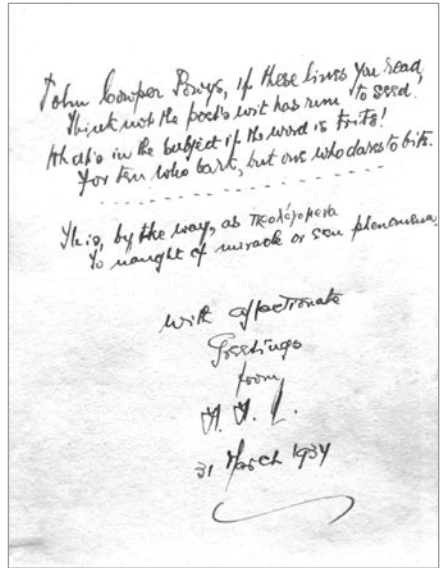 John Cowper Powys, if these lines you read,
Think not the poet's wit has run to seed.
What's in the subject if the word is trite!
For ten who bark, but one who dares to bite.
This, by the way, as προλεγόμενα
To naught of miracle or phenomena.
with affectionate
Greetings
from
31 March 1934